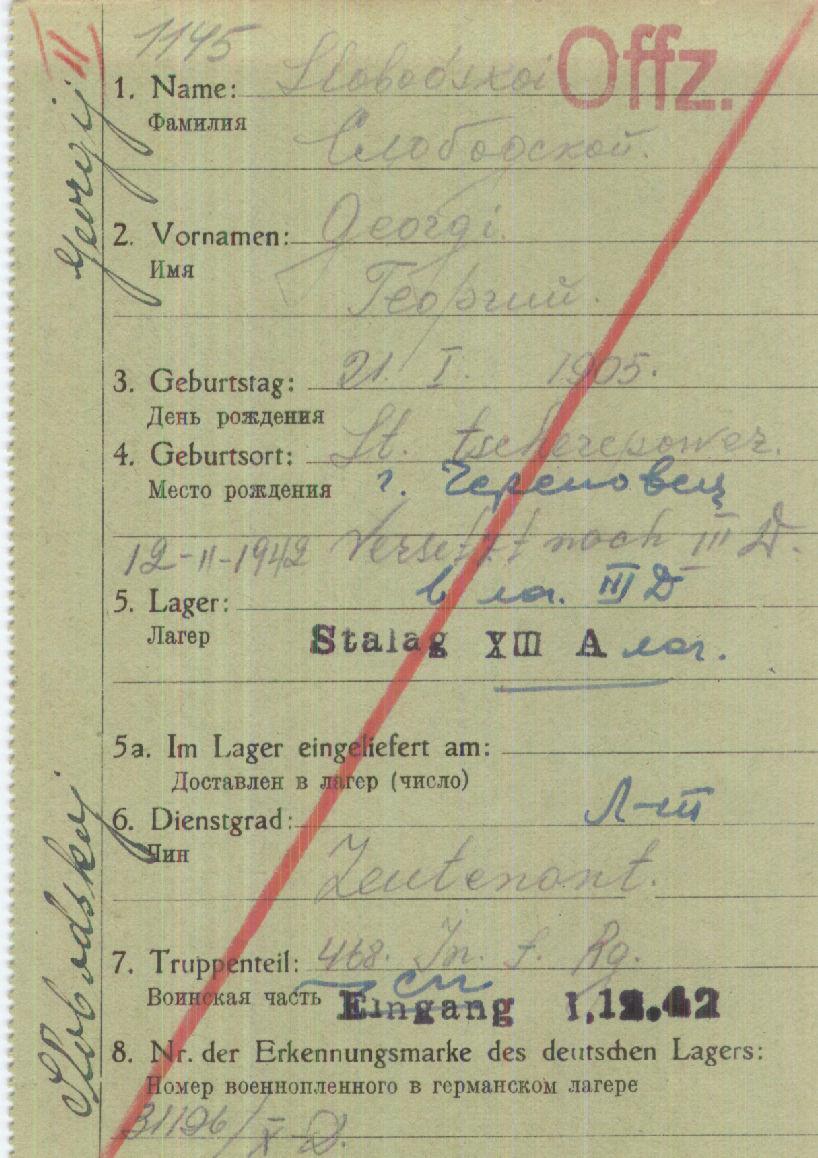 II
1145
Offz.
1. Name: Slobodskoi
Фамилия
Слободской.
Georgij
2. Vornamen: Georgi.
Имя
Георгий.
3. Geburtstag: 21. I. 1905.
День рождения
4. Geburtsort: St. tscherepowez.
Место рождения г. Череповец
12-II-1942 Versetzt nach III D.
5. Lager: в ла. III D
Лагер Stalag XIII A лаг.
5a. Im Lager eingeliefert am:
Доставлен в лагер (число)
6. Dienstgrad: Л-т
Чин
Leutenant.
Slobodskoj
7. Truppenteil: 468. In. f. Rg.
Воинская часть сп
Eingang 1.12.42
8. Nr. der Erkennungsmarke des deutschen Lagers:
Номер военнопленного в германском лагере
31196/X D.